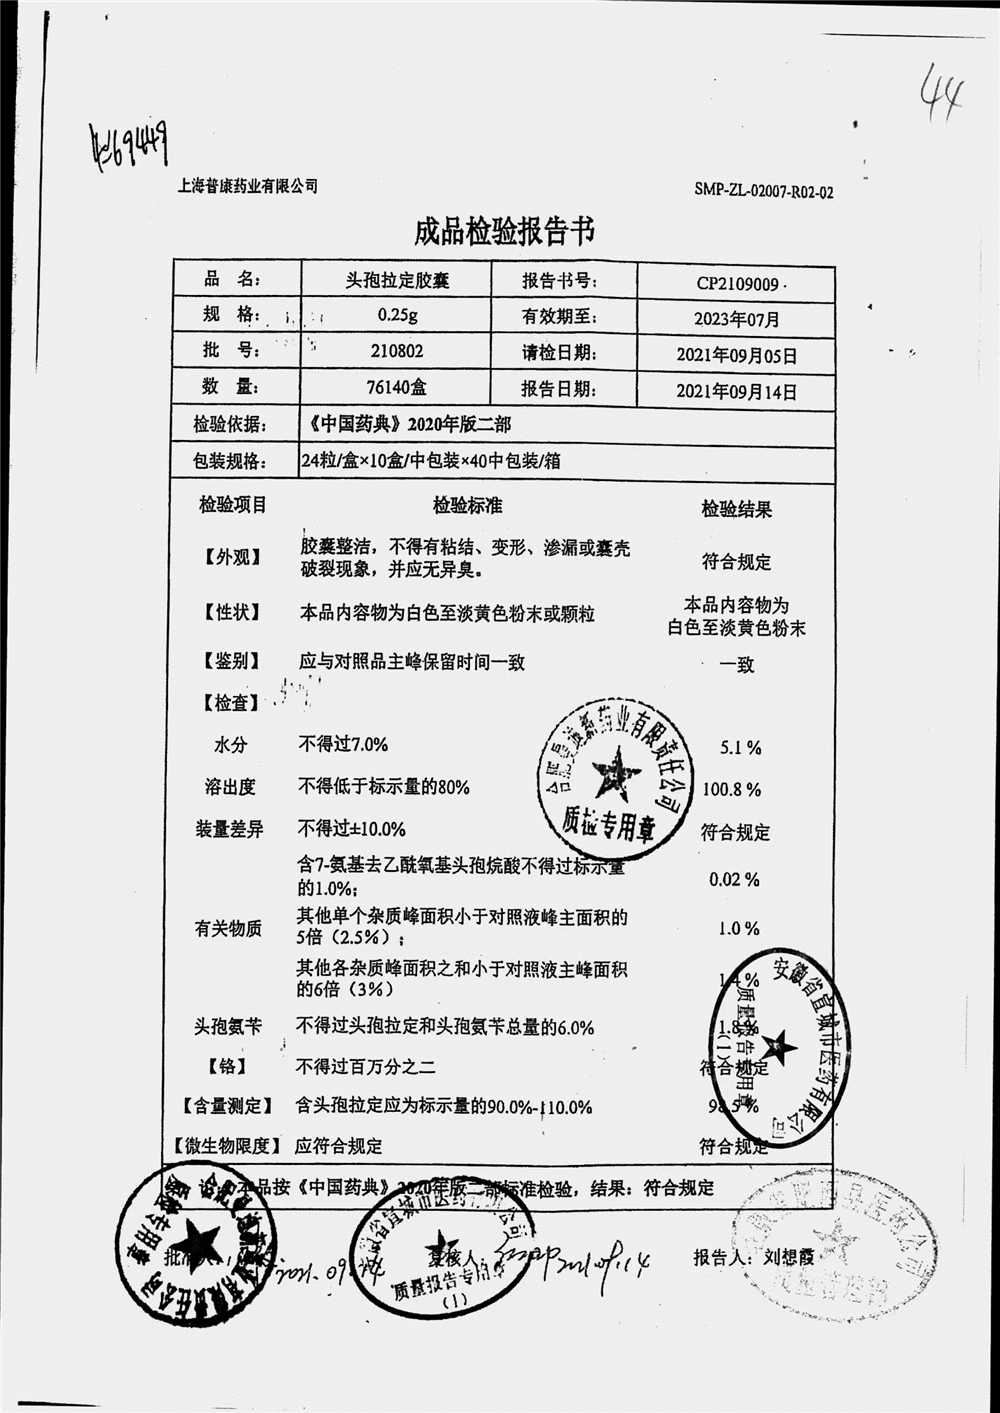 44
69449
上海普康药业有限公司
SMP-ZL-02007-R02-02
成品检验报告书
品 名: 头孢拉定胶囊 报告书号: CP2109009
规 格: 0.25g 有效期至: 2023年07月
批 号: 210802 请检日期: 2021年09月05日
数 量: 76140盒 报告日期: 2021年09月14日
检验依据: 《中国药典》2020年版二部
包装规格: 24粒/盒×10盒/中包装×40中包装/箱
检验项目 检验标准 检验结果
【外观】 胶囊整洁，不得有粘结、变形、渗漏或囊壳 符合规定
破裂现象，并应无异臭。
【性状】 本品内容物为白色至淡黄色粉末或颗粒 本品内容物为
白色至淡黄色粉末
【鉴别】 应与对照品主峰保留时间一致 一致
【检查】
水分 不得过7.0% 5.1 %
溶出度 不得低于标示量的80% 100.8 %
装量差异 不得过±10.0% 符合规定
含7-氨基去乙酰氧基头孢烷酸不得过标示量 0.02 %
的1.0%;
有关物质 其他单个杂质峰面积小于对照液峰主面积的 1.0 %
5倍（2.5%）;
其他各杂质峰面积之和小于对照液主峰面积 1.4 %
的6倍（3%）
头孢氨苄 不得过头孢拉定和头孢氨苄总量的6.0% 1.8 %
【铬】 不得过百万分之二 符合规定
【含量测定】 含头孢拉定应为标示量的90.0%-110.0% 98.5 %
【微生物限度】 应符合规定 符合规定
本品按《中国药典》2020年版二部标准检验，结果：符合规定
复核人:
报告人: 刘想霞
质检专用章
安徽省宣城市医药有限公司
质量报告专用章
(1)
质检专用章
安徽省宣城市医药有限公司
质量报告专用章
(1)